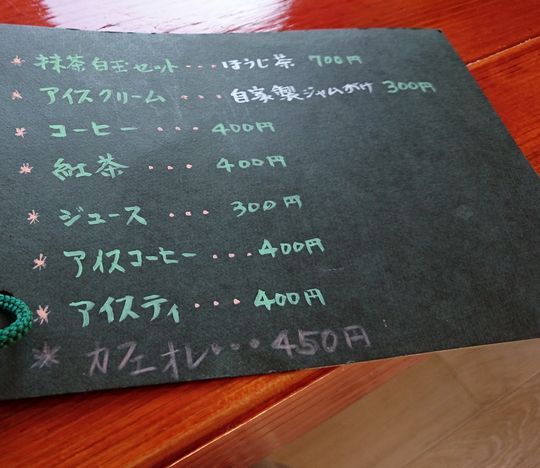 * 抹茶白玉セット・・・ほうじ茶 700円
* アイスクリーム・・・自家製ジャムがけ 300円
* コーヒー・・・400円
* 紅茶・・・400円
* ジュース・・・300円
* アイスコーヒー・・・400円
* アイスティ・・・400円
* カフェオレ・・・450円